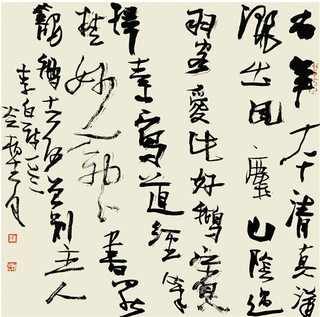 右軍本清真瀟
灑出風塵山陰過
羽客愛此好鵝賓
掃素寫道經筆
精妙入神書罷
籠鵝去何曾別主人
李白詩